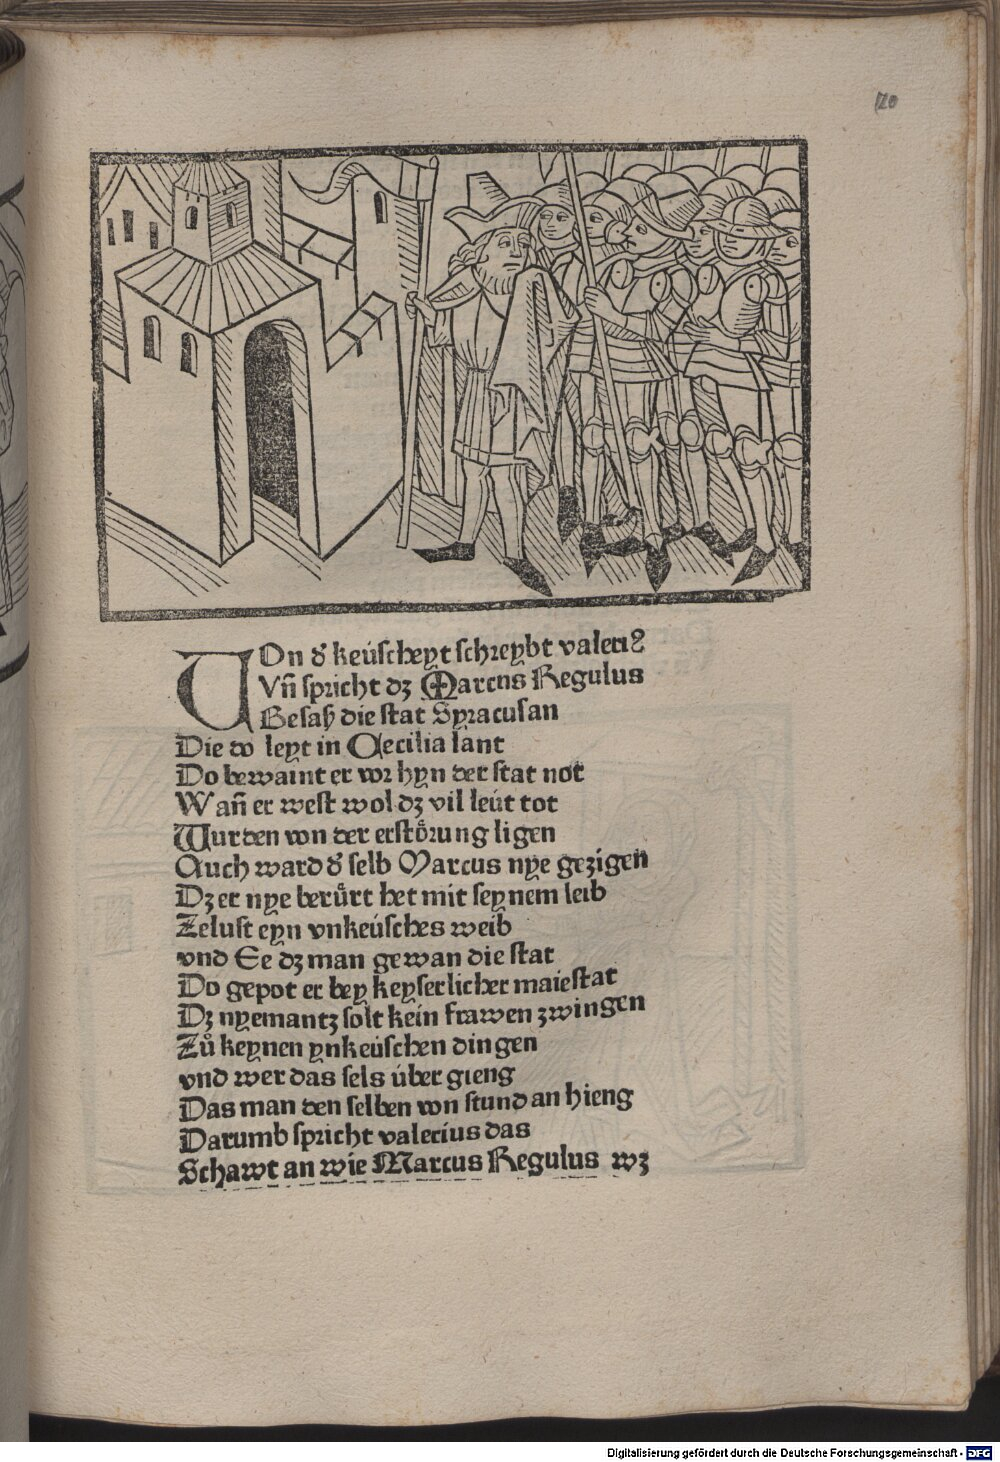 120
VOn ď keúscheyt schreybt valeriꝰ
Vn̄ spricht dʒ Marcns Regulus
Besaß die stat Syracusan
Die do leyt in Cecilia lant
Do bewaint er vor hyn der stat not
Wan̄ er west wol dʒ vil leút tot
Wurden von der erstoͤrung ligen
Auch ward ď selb Marcus nye geʒigen
Dʒ er nye beruͤrt het mit seynem leib
Zelust eyn vnkeúsches weib
vnd Ee dʒ man gewan die stat
Do gepot er bey keyserlicher maiestat
Dʒ nyemantʒ solt kein frawen ʒwingen
Zuͦ keynen ynkeúschen dingen
vnd wer das sels úber gieng
Das man den selben von stund an hieng
Darumb spricht valerius das
Schawt an wie Marcus Regulus wʒ
Digitalisierung gefördert durch die Deutsche Forschungsgemeinschaft - DFG